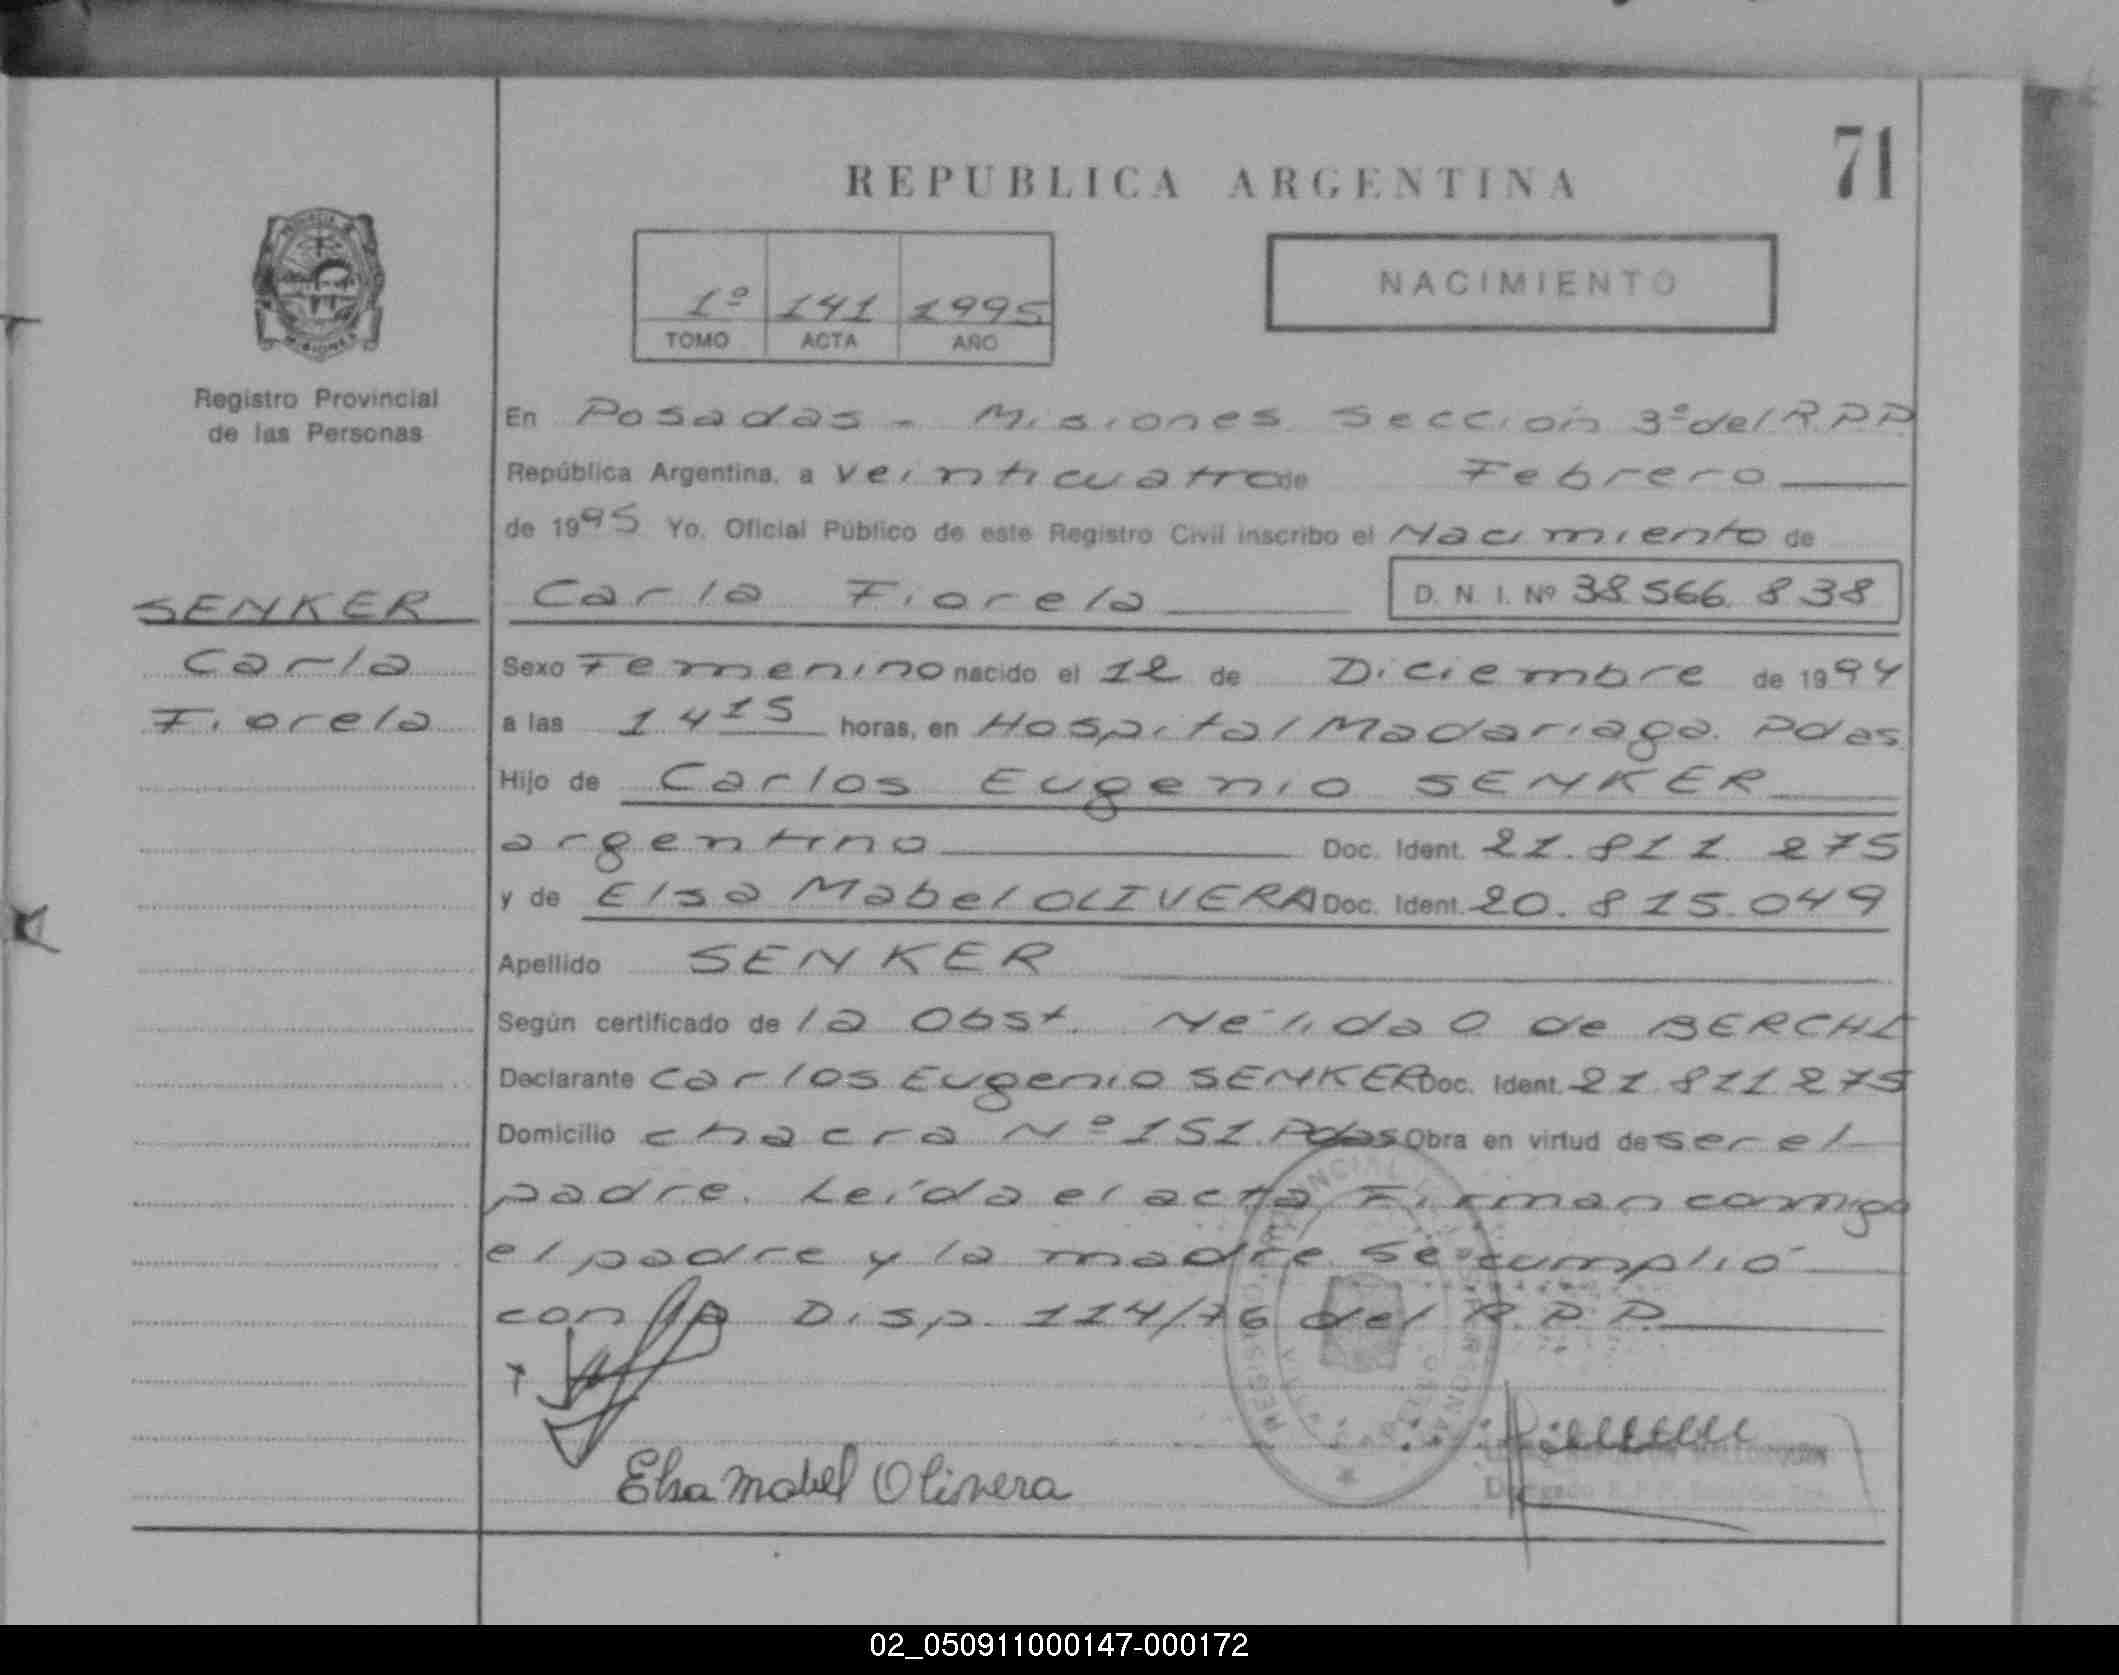 71
REPUBLICA ARGENTINA
1º 141 1995
TOMO ACTA AÑO
NACIMIENTO
Registro Provincial
de las Personas
En Posadas - Misiones Sección 3º del R.P.P.
República Argentina, a veinticuatro de Febrero
de 1995 Yo, Oficial Público de este Registro Civil inscribo el Nacimiento de
SENKER
Carla
Fiorela
Carla Fiorela D. N. I. Nº 38.566.838
Sexo Femenino nacido el 12 de Diciembre de 1994
a las 14 15 horas, en Hospital Madariaga. Pdas
Hijo de Carlos Eugenio SENKER
argentino Doc. Ident. 21.811.275
y de Elsa Mabel OLIVERA Doc. Ident. 20.815.049
Apellido SENKER
Según certificado de la Obst. Nélida O de BERCHE
Declarante Carlos Eugenio SENKER Doc. Ident. 21.811.275
Domicilio chacra Nº 151. Pdas Obra en virtud de ser el
padre. Leída el acta Firman conmigo
el padre y la madre. Se cumplió
con la Disp. 114/76 del R.P.P.
Elsa Mabel Olivera
02_050911000147-000172